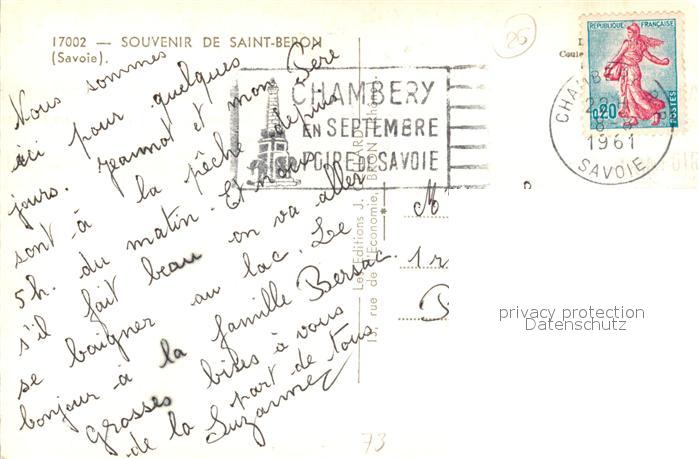 17002 — SOUVENIR DE SAINT-BERON
(Savoie).
Nous sommes
ici pour quelques
jours. Jeannot et mon Père
sont à la pêche depuis
5h. du matin. Et nous
s'il fait beau on va aller
se baigner au lac. Le
bonjour à la famille Bersac.
grosses bises à vous
de la part de tous
Suzanne
Les Editions J.
15, rue de l'Economie, BRON
CHAMBERY
EN SEPTEMBRE
FOIRE DE SAVOIE
RÉPUBLIQUE FRANÇAISE
0,20
POSTES
CHAMBERY
1961
SAVOIE
25
M
1 r
privacy protection
Datenschutz
73